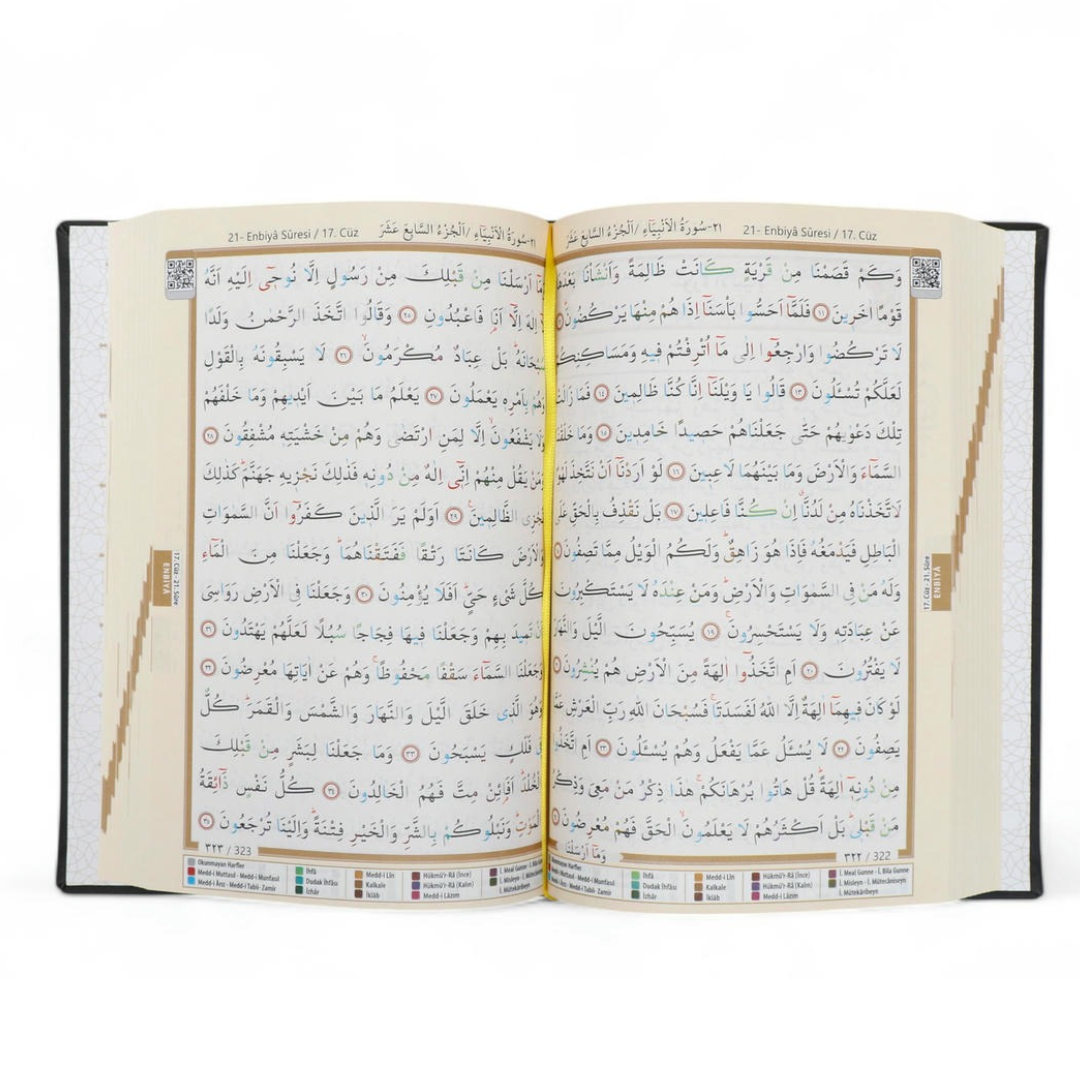 ٢١-سُورَةُ الْاَنْبِيَٓاءِ /اَلْجُزْءُ السَّابِعَ عَشَرَ 21- Enbiyâ Sûresi / 17. Cüz
وَكَمْ قَصَمْنَا مِنْ قَرْيَةٍ كَانَتْ ظَالِمَةً وَاَنْشَأْنَا بَعْدَهَا
قَوْمًا اٰخَرٖينَ ﴿١١﴾ فَلَمَّٓا اَحَسُّوا بَأْسَنَٓا اِذَا هُمْ مِنْهَا يَرْكُضُونَ
لَا تَرْكُضُوا وَارْجِعُٓوا اِلٰى مَٓا اُتْرِفْتُمْ فٖيهِ وَمَسَاكِنِكُمْ
لَعَلَّكُمْ تُسْـَٔلُونَ ﴿١٣﴾ قَالُوا يَا وَيْلَنَٓا اِنَّا كُنَّا ظَالِمٖينَ ﴿١٤﴾ فَمَا زَالَتْ
تِلْكَ دَعْوٰيهُمْ حَتّٰى جَعَلْنَاهُمْ حَصٖيدًا خَامِدٖينَ ﴿١٥﴾ وَمَا خَلَقْنَا
السَّمَٓاءَ وَالْاَرْضَ وَمَا بَيْنَهُمَا لَاعِبٖينَ ﴿١٦﴾ لَوْ اَرَدْنَٓا اَنْ نَتَّخِذَ لَهْوًا
لَاتَّخَذْنَاهُ مِنْ لَدُنَّاۗ اِنْ كُنَّا فَاعِلٖينَ ﴿١٧﴾ بَلْ نَقْذِفُ بِالْحَقِّ عَلَى
الْبَاطِلِ فَيَدْمَغُهُ فَاِذَا هُوَ زَاهِقٌۜ وَلَكُمُ الْوَيْلُ مِمَّا تَصِفُونَ
وَلَهُ مَنْ فِي السَّمٰوَاتِ وَالْاَرْضِۜ وَمَنْ عِنْدَهُ لَا يَسْتَكْبِرُونَ
عَنْ عِبَادَتِهٖ وَلَا يَسْتَحْسِرُونَۚ ﴿١٩﴾ يُسَبِّحُونَ الَّيْلَ وَالنَّهَارَ
لَا يَفْتُرُونَ ﴿٢٠﴾ اَمِ اتَّخَذُٓوا اٰلِهَةً مِنَ الْاَرْضِ هُمْ يُنْشِرُونَ
لَوْ كَانَ فٖيهِمَٓا اٰلِهَةٌ اِلَّا اللّٰهُ لَفَسَدَتَاۚ فَسُبْحَانَ اللّٰهِ رَبِّ الْعَرْشِ عَمَّا
يَصِفُونَ ﴿٢٢﴾ لَا يُسْـَٔلُ عَمَّا يَفْعَلُ وَهُمْ يُسْـَٔلُونَ ﴿٢٣﴾ اَمِ اتَّخَذُوا
مِنْ دُونِهٖٓ اٰلِهَةًۜ قُلْ هَاتُوا بُرْهَانَكُمْۚ هٰذَا ذِكْرُ مَنْ مَعِيَ وَذِكْرُ
مَنْ قَبْلٖيۜ بَلْ اَكْثَرُهُمْ لَا يَعْلَمُونَۙ الْحَقَّ فَهُمْ مُعْرِضُونَ
وَمَٓا اَرْسَلْنَا
٣٢٢ / 322
17. Cüz - 21. Sûre
ENBİYÂ
Okunmayan Harfler
İhfâ
Medd-i Lîn
Hükmü'r-Râ (İnce)
İ. Meal Gunne - İ. Bila Gunne
Medd-i Muttasıl - Medd-i Munfasıl
Dudak İhfâsı
Kalkale
Hükmü'r-Râ (Kalın)
İ. Misleyn - İ. Mütecâniseyn
Medd-i Ârız - Medd-i Tabîî - Zamir
İzhâr
İklâb
Medd-i Lâzım
İ. Mütekâribeyn
21- Enbiyâ Sûresi / 17. Cüz ٢١-سُورَةُ الْاَنْبِيَٓاءِ /اَلْجُزْءُ السَّابِعَ عَشَرَ
وَمَٓا اَرْسَلْنَا مِنْ قَبْلِكَ مِنْ رَسُولٍ اِلَّا نُوحٖٓي اِلَيْهِ اَنَّهُ
لَٓا اِلٰهَ اِلَّٓا اَنَا۬ فَاعْبُدُونِ ﴿٢٥﴾ وَقَالُوا اتَّخَذَ الرَّحْمٰنُ وَلَدًا
سُبْحَانَهُۜ بَلْ عِبَادٌ مُكْرَمُونَۙ ﴿٢٦﴾ لَا يَسْبِقُونَهُ بِالْقَوْلِ
وَهُمْ بِاَمْرِهٖ يَعْمَلُونَ ﴿٢٧﴾ يَعْلَمُ مَا بَيْنَ اَيْدٖيهِمْ وَمَا خَلْفَهُمْ
وَلَا يَشْفَعُونَۙ اِلَّا لِمَنِ ارْتَضٰى وَهُمْ مِنْ خَشْيَتِهٖ مُشْفِقُونَ ﴿٢٨﴾
وَمَنْ يَقُلْ مِنْهُمْ اِنّٖٓي اِلٰهٌ مِنْ دُونِهٖ فَذٰلِكَ نَجْزٖيهِ جَهَنَّمَۜ كَذٰلِكَ
نَجْزِي الظَّالِمٖينَ۟ ﴿٢٩﴾ اَوَلَمْ يَرَ الَّذٖينَ كَفَرُٓوا اَنَّ السَّمٰوَاتِ
وَالْاَرْضَ كَانَتَا رَتْقًا فَفَتَقْنَاهُمَاۜ وَجَعَلْنَا مِنَ الْمَٓاءِ
كُلَّ شَيْءٍ حَيٍّۜ اَفَلَا يُؤْمِنُونَ ﴿٣٠﴾ وَجَعَلْنَا فِي الْاَرْضِ رَوَاسِيَ
اَنْ تَمٖيدَ بِهِمْ وَجَعَلْنَا فٖيهَا فِجَاجًا سُبُلًا لَعَلَّهُمْ يَهْتَدُونَ ﴿٣١﴾
وَجَعَلْنَا السَّمَٓاءَ سَقْفًا مَحْفُوظًاۚ وَهُمْ عَنْ اٰيَاتِهَا مُعْرِضُونَ ﴿٣٢﴾
وَهُوَ الَّذٖي خَلَقَ الَّيْلَ وَالنَّهَارَ وَالشَّمْسَ وَالْقَمَرَۜ كُلٌّ
فٖي فَلَكٍ يَسْبَحُونَ ﴿٣٣﴾ وَمَا جَعَلْنَا لِبَشَرٍ مِنْ قَبْلِكَ
الْخُلْدَۜ اَفَا۬ئِنْ مِتَّ فَهُمُ الْخَالِدُونَ ﴿٣٤﴾ كُلُّ نَفْسٍ ذَٓائِقَةُ
الْمَوْتِۜ وَنَبْلُوكُمْ بِالشَّرِّ وَالْخَيْرِ فِتْنَةًۜ وَاِلَيْنَا تُرْجَعُونَ ﴿٣٥﴾
٣٢٣ / 323
17. Cüz - 21. Sûre
ENBİYÂ
Okunmayan Harfler
İhfâ
Medd-i Lîn
Hükmü'r-Râ (İnce)
İ. Meal Gunne - İ. Bila Gunne
Medd-i Muttasıl - Medd-i Munfasıl
Dudak İhfâsı
Kalkale
Hükmü'r-Râ (Kalın)
İ. Misleyn - İ.
Medd-i Ârız - Medd-i Tabîî - Zamir
İzhâr
İklâb
Medd-i Lâzım
İ. Mütekâribeyn